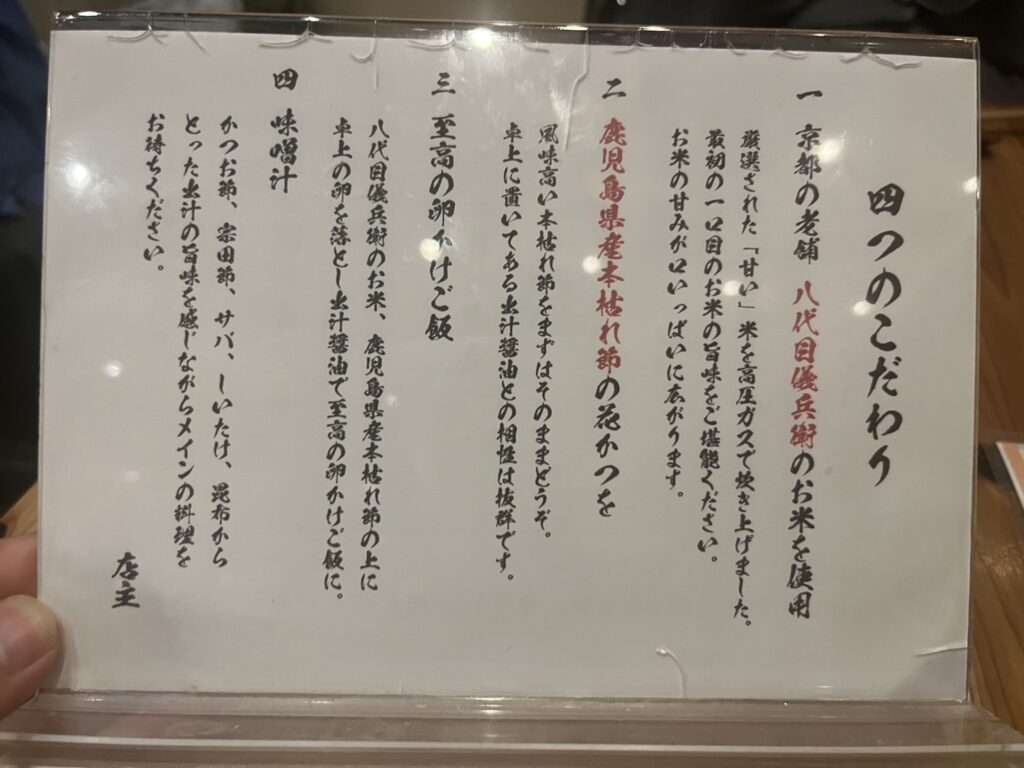 四つのこだわり
一 京都の老舗 八代目儀兵衛のお米を使用
厳選された「甘い」米を高圧ガスで炊き上げました。
最初の一口目のお米の旨味をご堪能ください。
お米の甘みが口いっぱいに広がります。
二 鹿児島県産本枯れ節の花かつを
風味高い本枯れ節をまずはそのままどうぞ。
卓上に置いてある出汁醤油との相性は抜群です。
三 至高の卵かけご飯
八代目儀兵衛のお米、鹿児島県産本枯れ節の上に
卓上の卵を落とし出汁醤油で至高の卵かけご飯に。
四 味噌汁
かつお節、宗田節、サバ、しいたけ、昆布から
とった出汁の旨味を感じながらメインの料理を
お待ちください。
店主